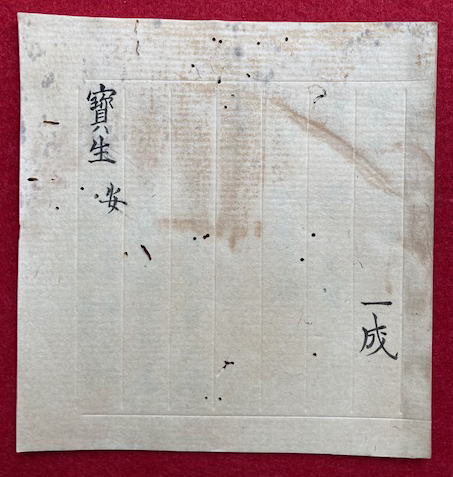 一成
寶生 安